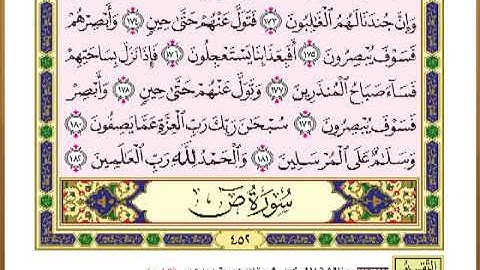 وَإِنَّ جُندَنَا لَهُمُ ٱلْغَٰلِبُونَ ١٧٣ فَتَوَلَّ عَنْهُمْ حَتَّىٰ حِينٍ ١٧٤ وَأَبْصِرْهُمْ
فَسَوْفَ يُبْصِرُونَ ١٧٥ أَفَبِعَذَابِنَا يَسْتَعْجِلُونَ ١٧٦ فَإِذَا نَزَلَ بِسَاحَتِهِمْ
فَسَآءَ صَبَاحُ ٱلْمُنذَرِينَ ١٧٧ وَتَوَلَّ عَنْهُمْ حَتَّىٰ حِينٍ ١٧٨ وَأَبْصِرْ
فَسَوْفَ يُبْصِرُونَ ١٧٩ سُبْحَٰنَ رَبِّكَ رَبِّ ٱلْعِزَّةِ عَمَّا يَصِفُونَ ١٨٠
وَسَلَٰمٌ عَلَى ٱلْمُرْسَلِينَ ١٨١ وَٱلْحَمْدُ لِلَّهِ رَبِّ ٱلْعَٰلَمِينَ ١٨٢
سُورَةُ صٓ
٤٥٢